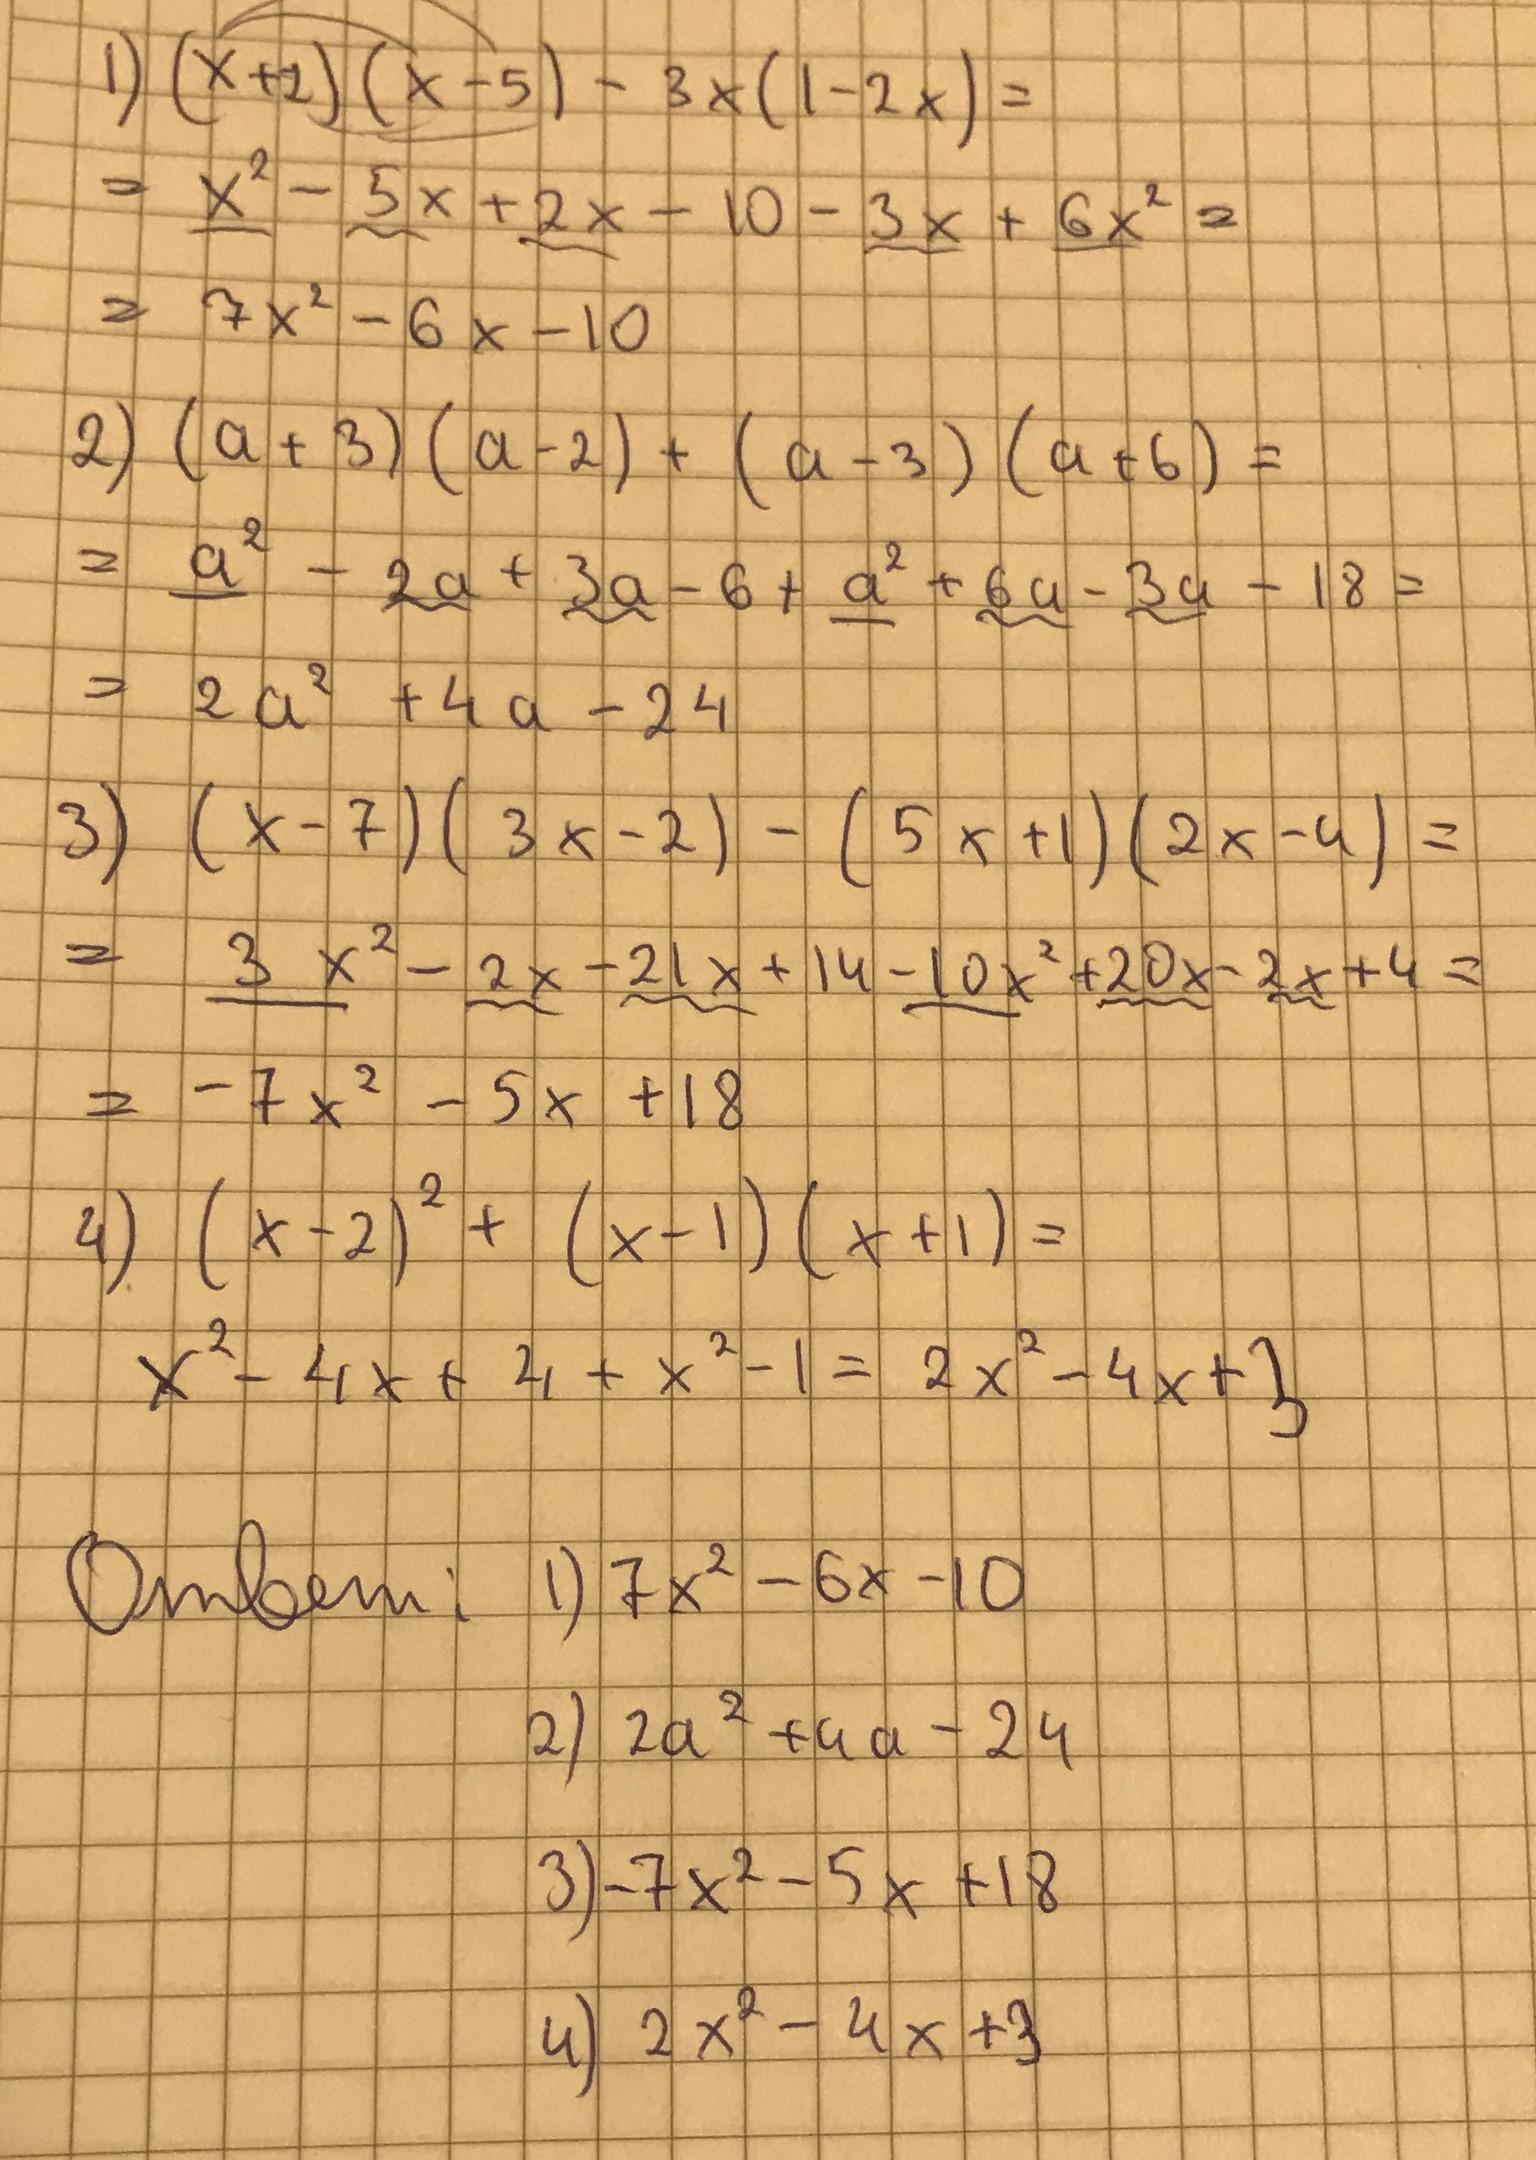 1) (x+2)(x-5) - 3x(1-2x) =
= x² - 5x + 2x - 10 - 3x + 6x² =
= 7x² - 6x - 10
2) (a+3)(a-2) + (a-3)(a+6) =
= a² - 2a + 3a - 6 + a² + 6a - 3a - 18 =
= 2a² + 4a - 24
3) (x-7)(3x-2) - (5x+1)(2x-4) =
= 3x² - 2x - 21x + 14 - 10x² + 20x - 2x + 4 =
= -7x² - 5x + 18
4) (x-2)² + (x-1)(x+1) =
x² - 4x + 4 + x² - 1 = 2x² - 4x + 3
Ответ: 1) 7x² - 6x - 10
2) 2a² + 4a - 24
3) -7x² - 5x + 18
4) 2x² - 4x + 3